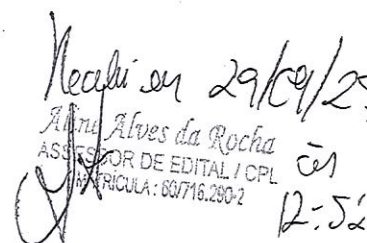 Recebi em 29/09/2
Aline Alves da Rocha
ASSESSOR DE EDITAL / CPL
às
MATRÍCULA: 60/716.290-2
12:52